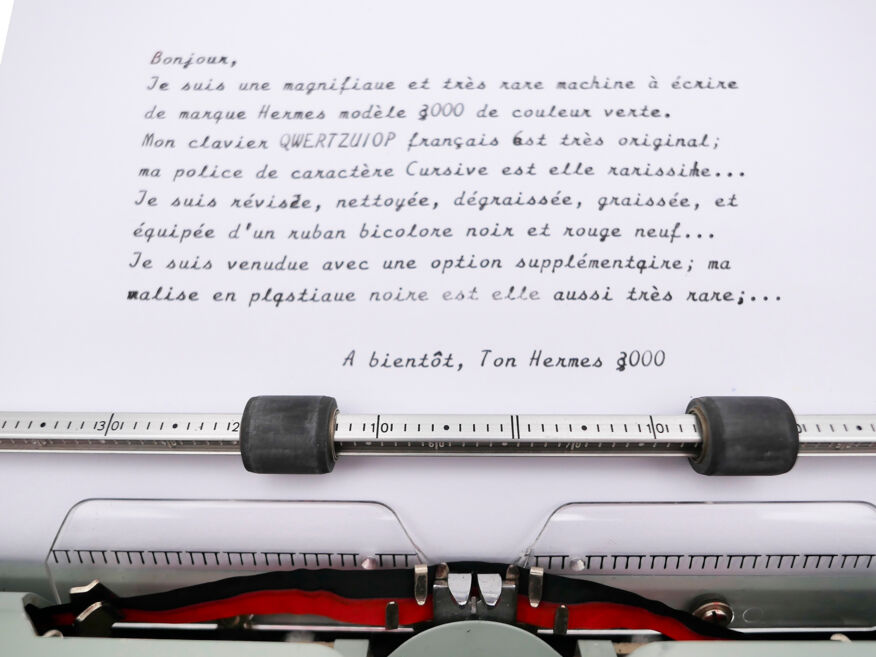 Bonjour,
Je suis une magnifiaue et très rare machine à écrire
de marque Hermes modèle 3000 de couleur verte.
Mon clavier QWERTZUIOP français est très original;
ma police de caractère Cursive est elle rarissime...
Je suis révisée, nettoyée, dégraissée, graissée, et
équipée d'un ruban bicolore noir et rouge neuf...
Je suis venudue avec une option supplémentqire; ma
valise en plqstiaue noire est elle aussi très rare;...
A bientôt, Ton Hermes 3000